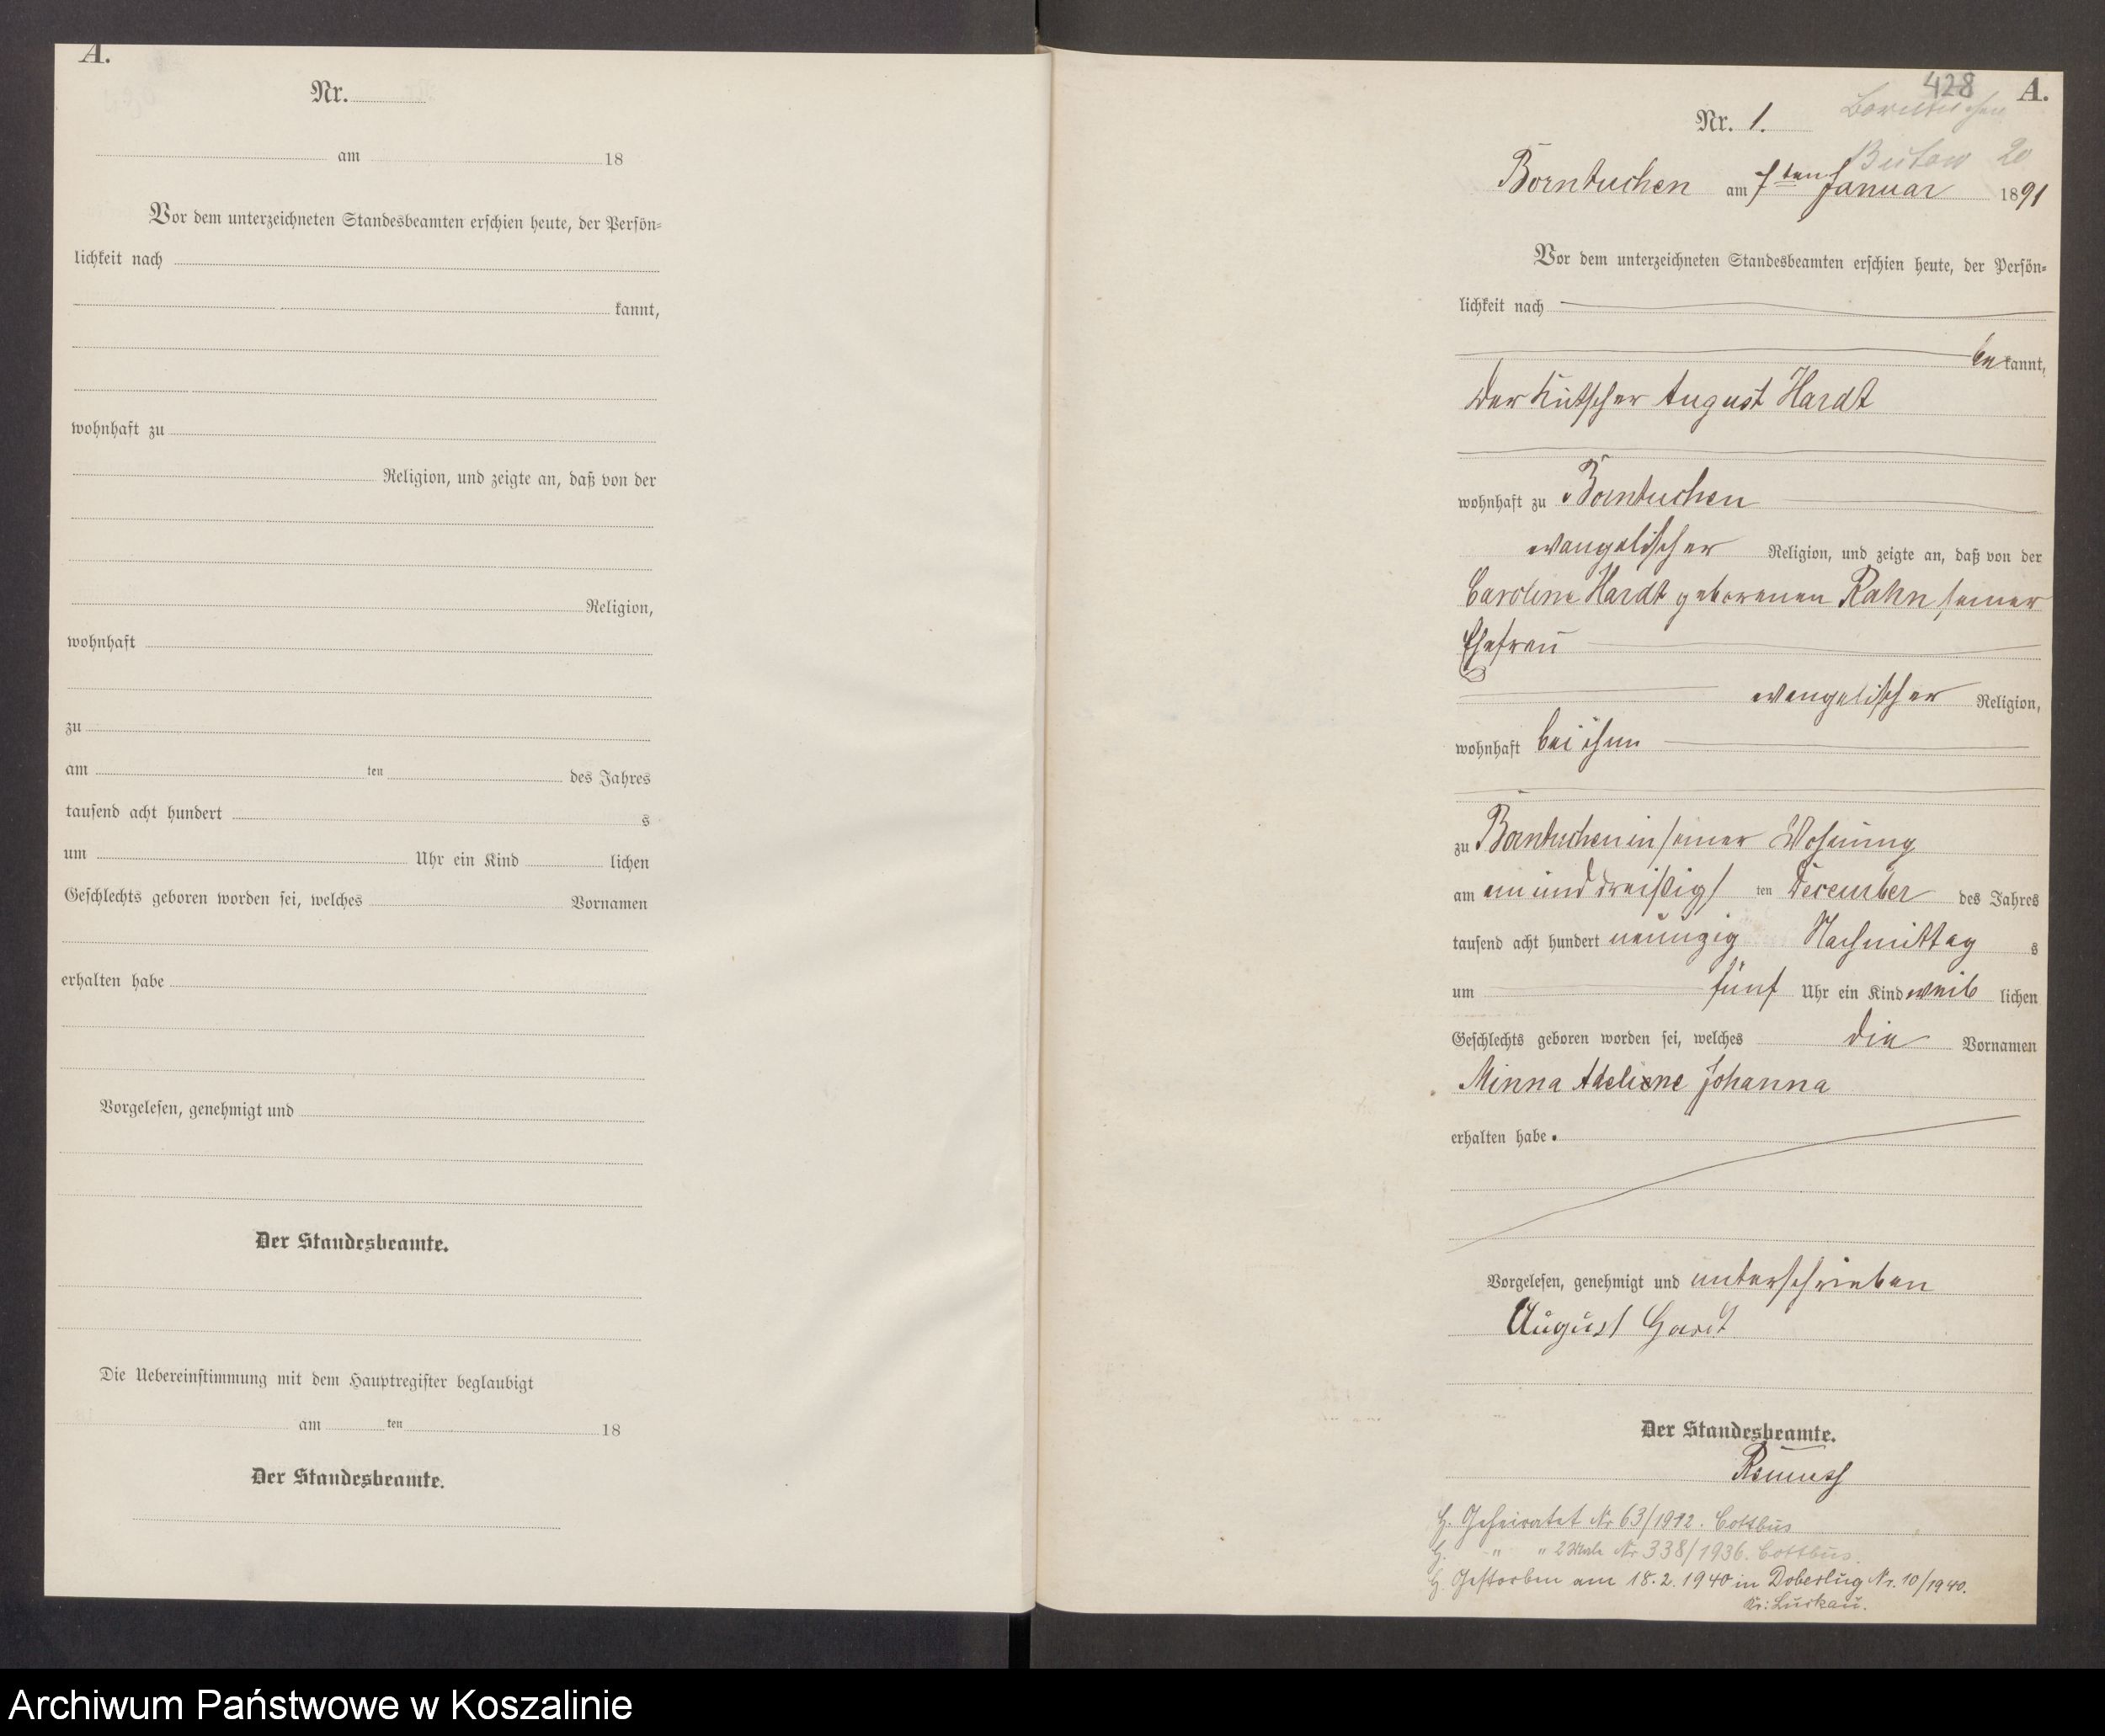 A.
Nr.
am 18
Vor dem unterzeichneten Standesbeamten erschien heute, der Persön=
lichkeit nach
kannt,
wohnhaft zu
Religion, und zeigte an, daß von der
Religion,
wohnhaft
zu
am ten des Jahres
tausend acht hundert s
um Uhr ein Kind lichen
Geschlechts geboren worden sei, welches Vornamen
erhalten habe
Vorgelesen, genehmigt und
Der Standesbeamte.
Die Uebereinstimmung mit dem Hauptregister beglaubigt
am ten 18
Der Standesbeamte.
428 A.
Borntuchen
Nr. 1.
Bütow 20
Borntuchen am 7ten Januar 1891
Vor dem unterzeichneten Standesbeamten erschien heute, der Persön=
lichkeit nach
bekannt,
der Kutscher August Hardt
wohnhaft zu Borntuchen
evangelischer Religion, und zeigte an, daß von der
Caroline Hardt geborenen Rahn seiner
Ehefrau
evangelischer Religion,
wohnhaft bei ihm
zu Borntuchen in seiner Wohnung
am ein und dreißigs ten December des Jahres
tausend acht hundert neunzig Nachmittag s
um fünf Uhr ein Kind weib lichen
Geschlechts geboren worden sei, welches die Vornamen
Minna Adeline Johanna
erhalten habe.
Vorgelesen, genehmigt und unterschrieben
August Hardt
Der Standesbeamte.
G. Geheiratet Nr 63/1912. Cottbus
G. " " 2 Male Nr 338/1936. Cottbus.
G. Gestorben am 18.2.1940 in Doberlug Nr. 10/1940.
Kr: Luckau.
Archiwum Państwowe w Koszalinie